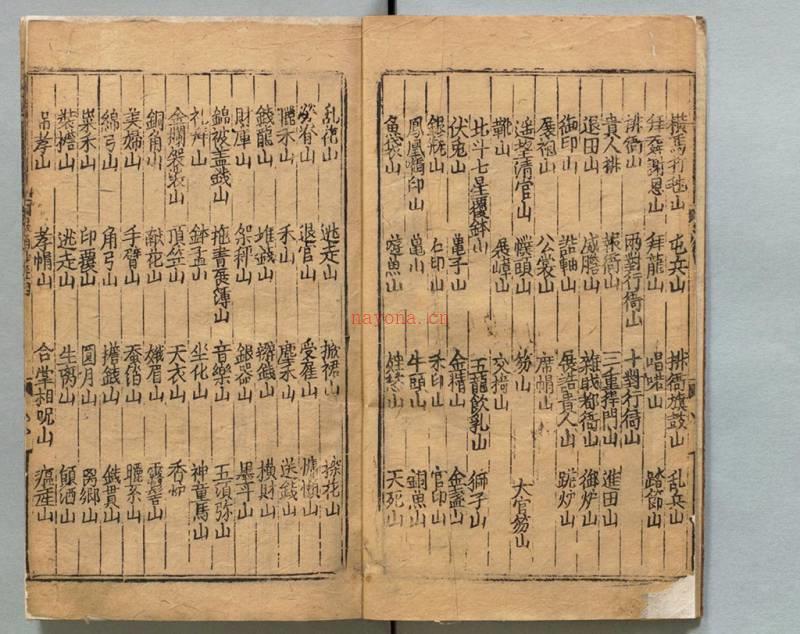 橫馬打毬山 屯兵山 排衙旗鼓山 乱兵山
拜舞謝恩山 拜龍山 唱喏山 踏節山
排衙山 兩對行衙山 十對行衙山
貴人排 報衙山 三重排門山 進田山
退田山 威勝山 雜職都衙山 御炉山
御印山 誥軸山 展誥貴人山 炉山
展袍山 公裳山 席帽山
遥望清官山 幞頭山 笏山 大官笏山
靴山 展幛山 交椅山
北斗七星覆鉢山 五龍飲乳山 獅子山
伏兎山 亀子山 金精山 金盞山
銀瓶山 石印山 禾印山 官印山
鳳凰啣印山 亀山 牛頭山 銅魚山
魚袋山 魚山 山 天死山
乱花山 逃走山 掀裙山 探花山
山 退官山 受雇山 慵懶山
禾山 禾山 塵禾山 送錢山
錢龍山 堆錢山 撥錢山 橫財山
財庫山 架秤山 銀器山 墨斗山
錦被蓋錢山 拖書展簿山 音樂山 五須弥山
礼拜山 鉢盂山 坐化山 神童馬山
金襴袈裟山 頂笠山 天衣山 香炉
銅角山 献花山 娥眉山 山
美婦山 手臂山 蚕山 山
綿弓山 角弓山 擔錢山 錢貫山
山 印覆山 圓月山 山
裝擔山 逃走山 生山 傾酒山
吊孝山 孝帽山 合掌相呪山 瘟山
nayona.cn